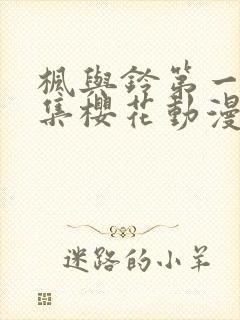 楓與鈴第一
集櫻花動漫
迷路的小羊